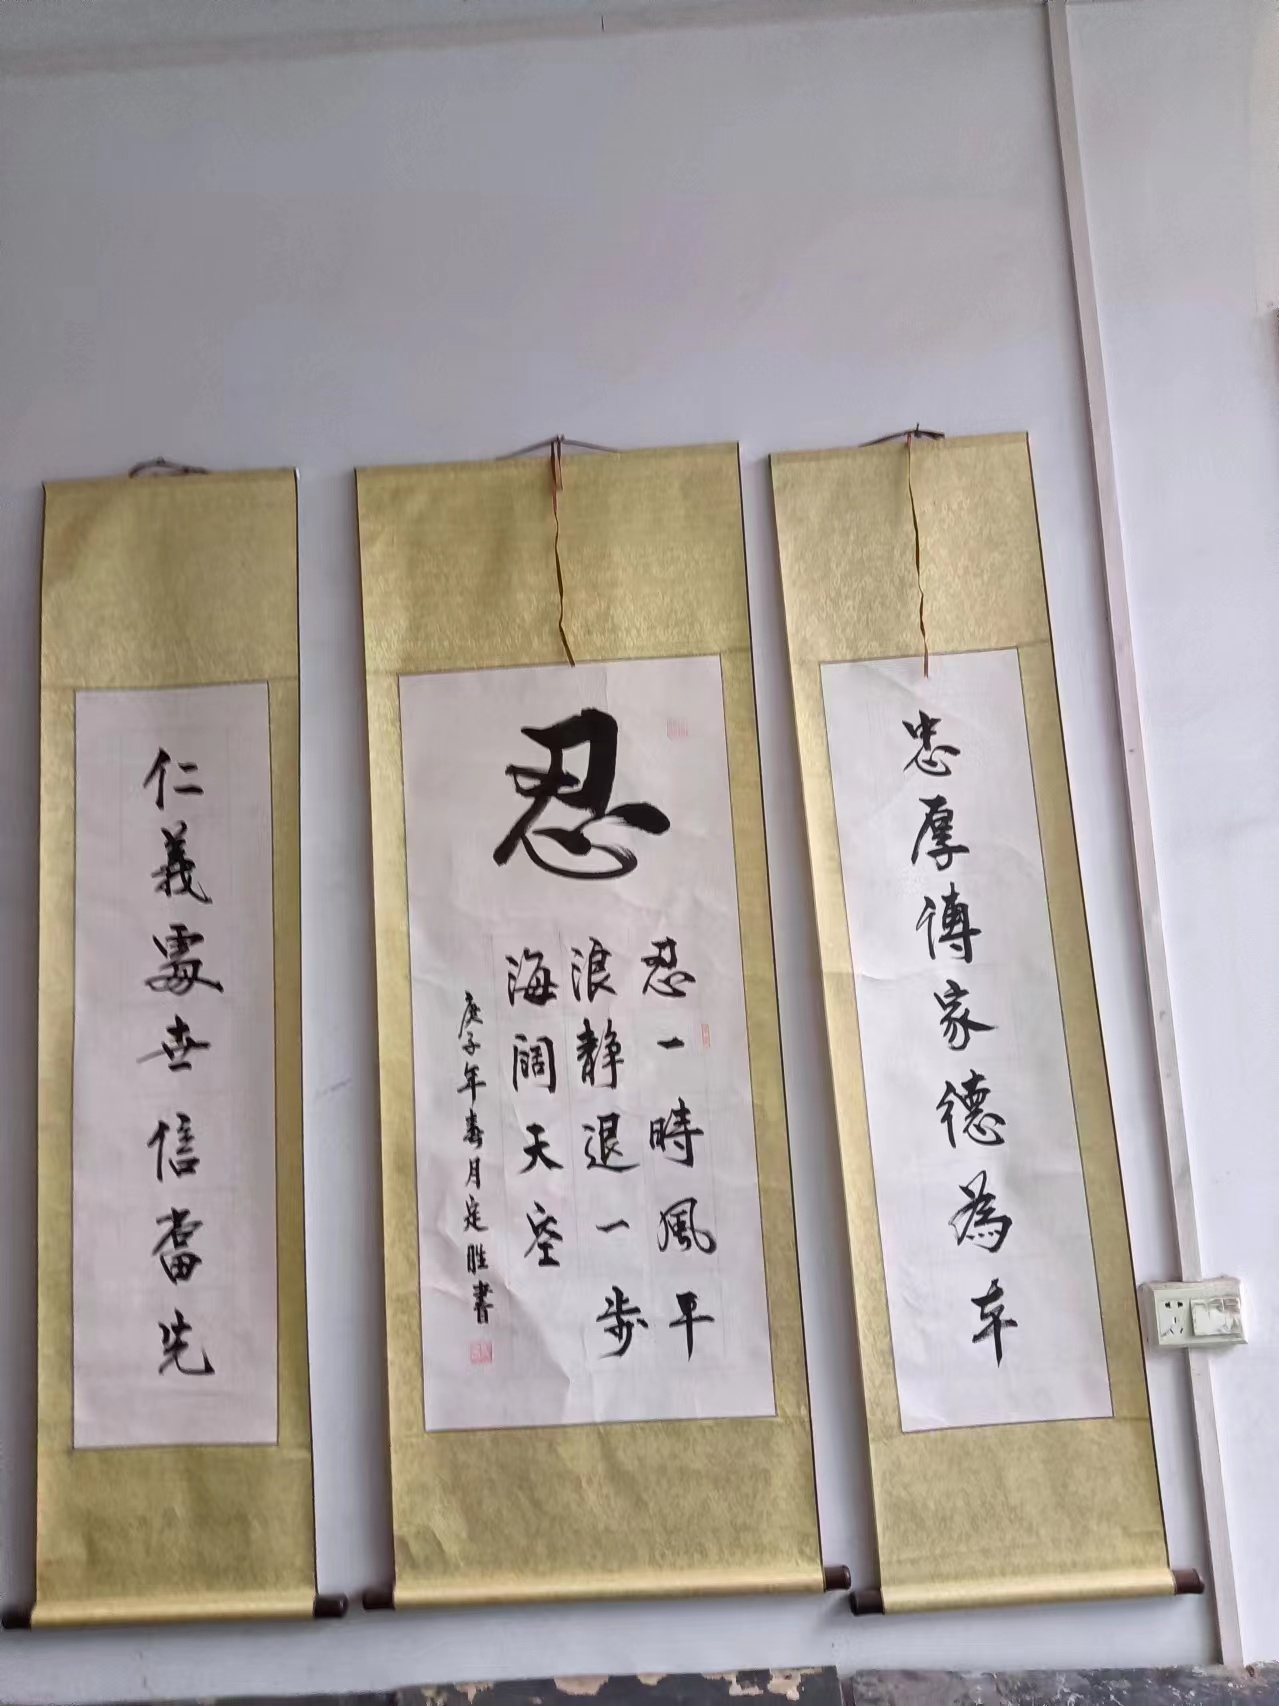 忠厚傳家德為本
忍
忍一時風平
浪静退一步
海阔天空
庚子年春月定胜書
仁義處世信當先